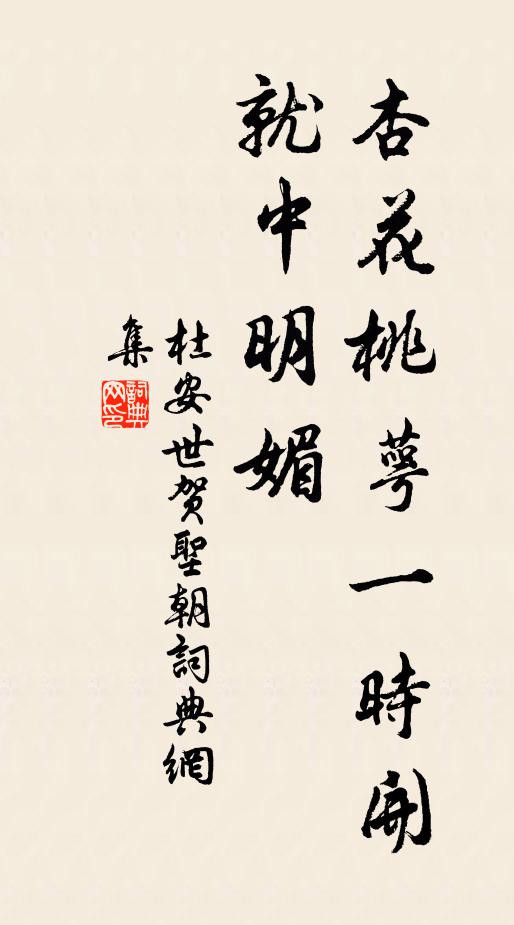 杏花桃萼一時開
就中明媚
杜安世賀聖朝詞典網
集
詞典网印